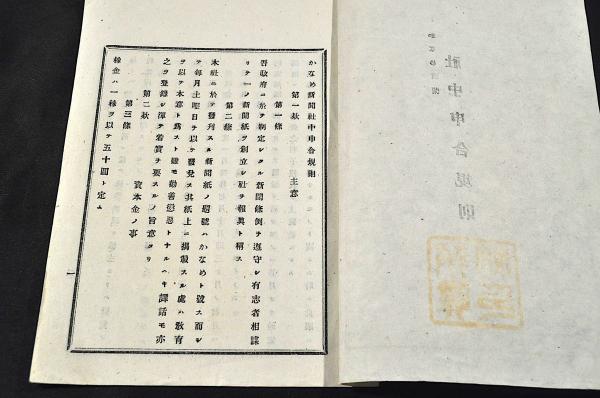 かなめ新聞社中申合規則
第一欵　主意
第一條
吾政府ニ於テ制定シタル新聞條例ヲ遵守シ有志者相謀
リテ一ノ新聞紙ヲ創立シ社ヲ報眞ト稱ス
第二條
本社ニ於テ發列スル新聞紙ノ題號ハかなめト號ス而シ
テ毎月土曜日ヲ以テ發兌ス其紙上ニ揭載スル處ハ敎育
ヲ以テ本意ト爲スト雖モ勸善懲惡トナルヘキ譚話モ亦
之ヲ登錄シ渾テ着實ヲ要スルノ旨意タリ
第二欵　資本金ノ事
第三條
株金ハ一株ヲ以テ五十圓ト定ム
一
社中申合規則